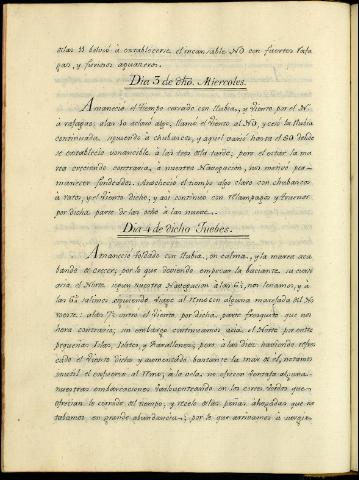 alas 11 bolvió à establecerse el incansable NO con fuertes rafa
gas, y furiosos aguaseros.
Dia 3 de dho. Miercoles.
Amaneció el tiempo cerrado con llubia, y viento por el N.
à rafagas; alas 10 aclaró algo, llamó el viento al NO, y cesó la llubia
continuada, siguiendo à chubascos, y aquel varió hasta el SO. dónde
se estableció vonancible à las tres dela tarde; pero el estar la ma
rea creciendo contraria, à nuestra Navegacion, nos motivó per
manecer fondeados. Anocheció el tiempo algo claro con chubascos
à ratos, y el viento dicho; y asi continuó con relampagos y truenos
por dicha parte de las ocho à las nueve.
Dia 4 de dicho Juebes.
Amaneció toldado con llubia, en calma, y la marea aca
bando de crecer; por lo que deviendo empezar la baciante su curso
acia el Norte segun nuestra Navegacion à las 6½, nos levamos, y à
las 6¾ salimos siguiendo al
con alguna marejada del No
roeste: alas 7½ entró el viento, por dicha, parte fresquito que nos
hera contrario; sin embargo continuamos acia el Norte por entre
pequeñas Islas, Islotes, y Farallones; pero à las diez haviendo refres
cado el viento dicho y aumentado bastante la mar de él, notamos
inutil el esfuerzo al
à la vela, no ofrecer ventaja alguna
nuestras embarcaciones
en los cortos bordos que
ofrecian lo cerrado del tiempo, y recelo delas peñas ahogadas que no
tabamos en grande abundancia; por lo que arrivamos à